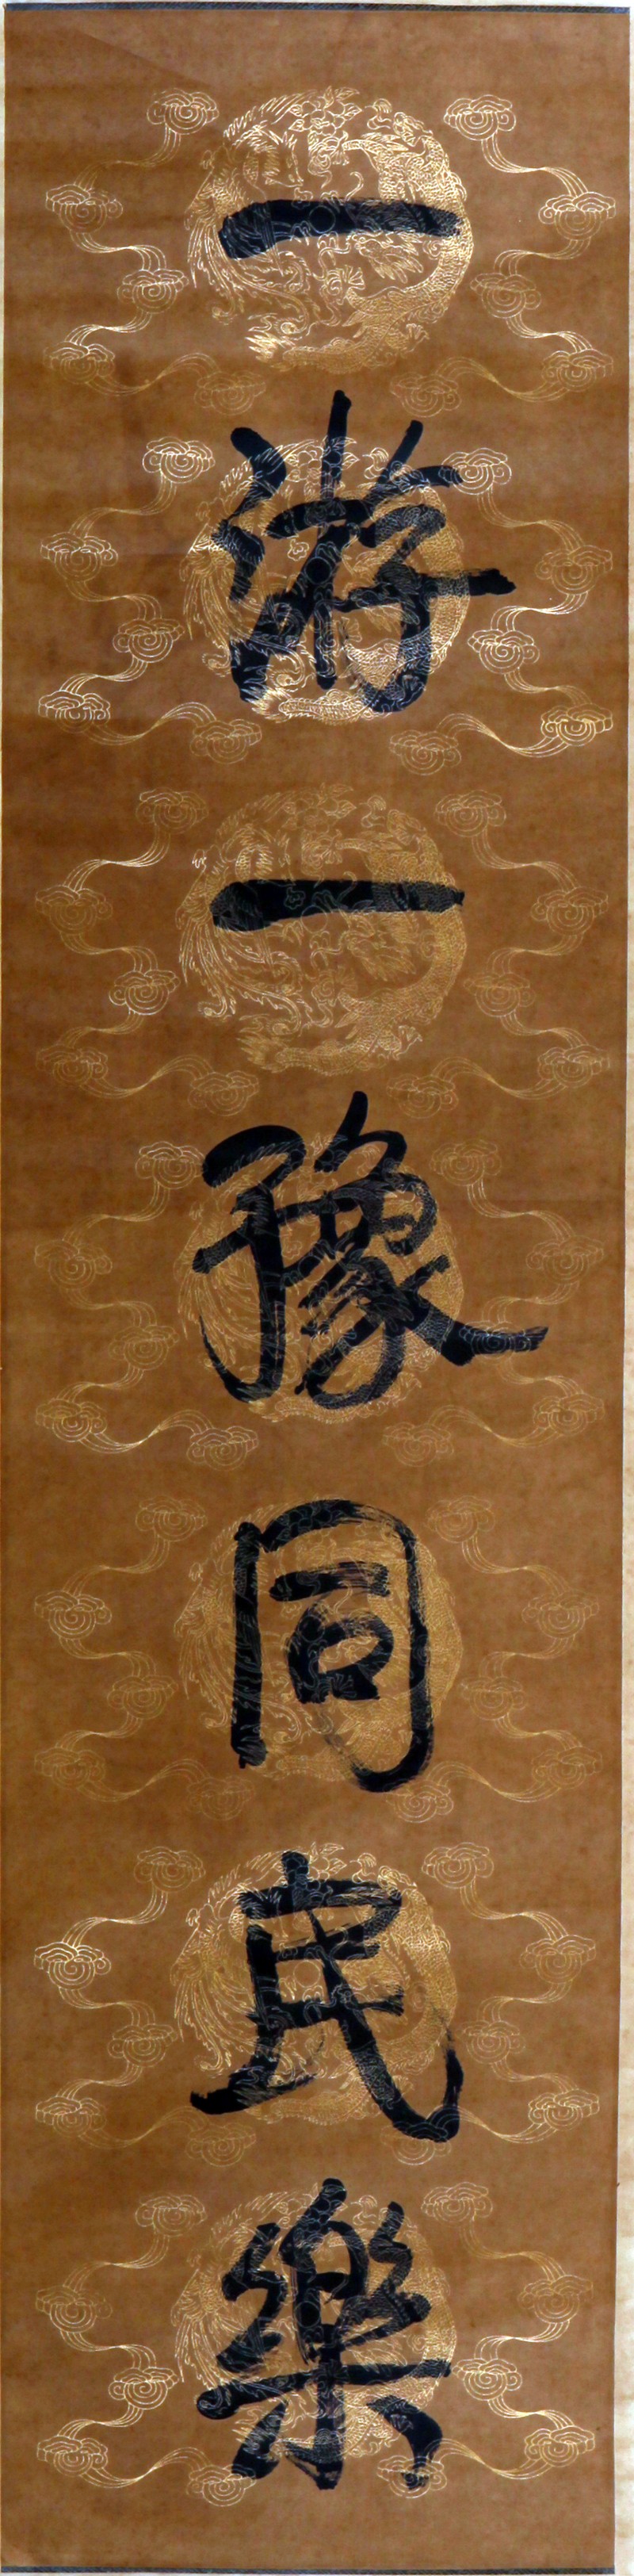 一游一豫同民樂